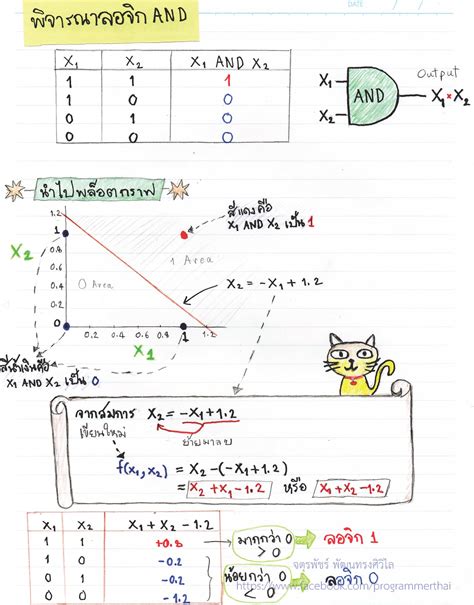 พิจารณาลอจิก AND
X₁ X₂ X₁ AND X₂
1 1 1
1 0 0
0 1 0
0 0 0
X₁
X₂
AND
Output
X₁ * X₂
นำไปพล็อตกราฟ
สีแดงคือ
X₁ AND X₂ เป็น 1
1.2
1
0.8
0.6
0.4
0.2
0
X₂
0 Area
1 Area
X₂ = -X₁ + 1.2
0 0.2 0.4 0.6 0.8 1 1.2
X₁
สีน้ำเงินคือ
X₁ AND X₂ เป็น 0
จากสมการ X₂ = -X₁ + 1.2
เขียนใหม่
ย้ายมาลบ
f(x₁, x₂) = X₂ -(-X₁ + 1.2)
= X₂ + X₁ - 1.2 หรือ X₁ + X₂ - 1.2
X₁ X₂ X₁ + X₂ - 1.2
1 1 +0.8
1 0 -0.2
0 1 -0.2
0 0 -1.2
มากกว่า 0
> 0
ลอจิก 1
น้อยกว่า 0
< 0
ลอจิก 0
จตุรพัชร์ พัฒนทรงศิวิไล
https://www.facebook.com/programmerthai